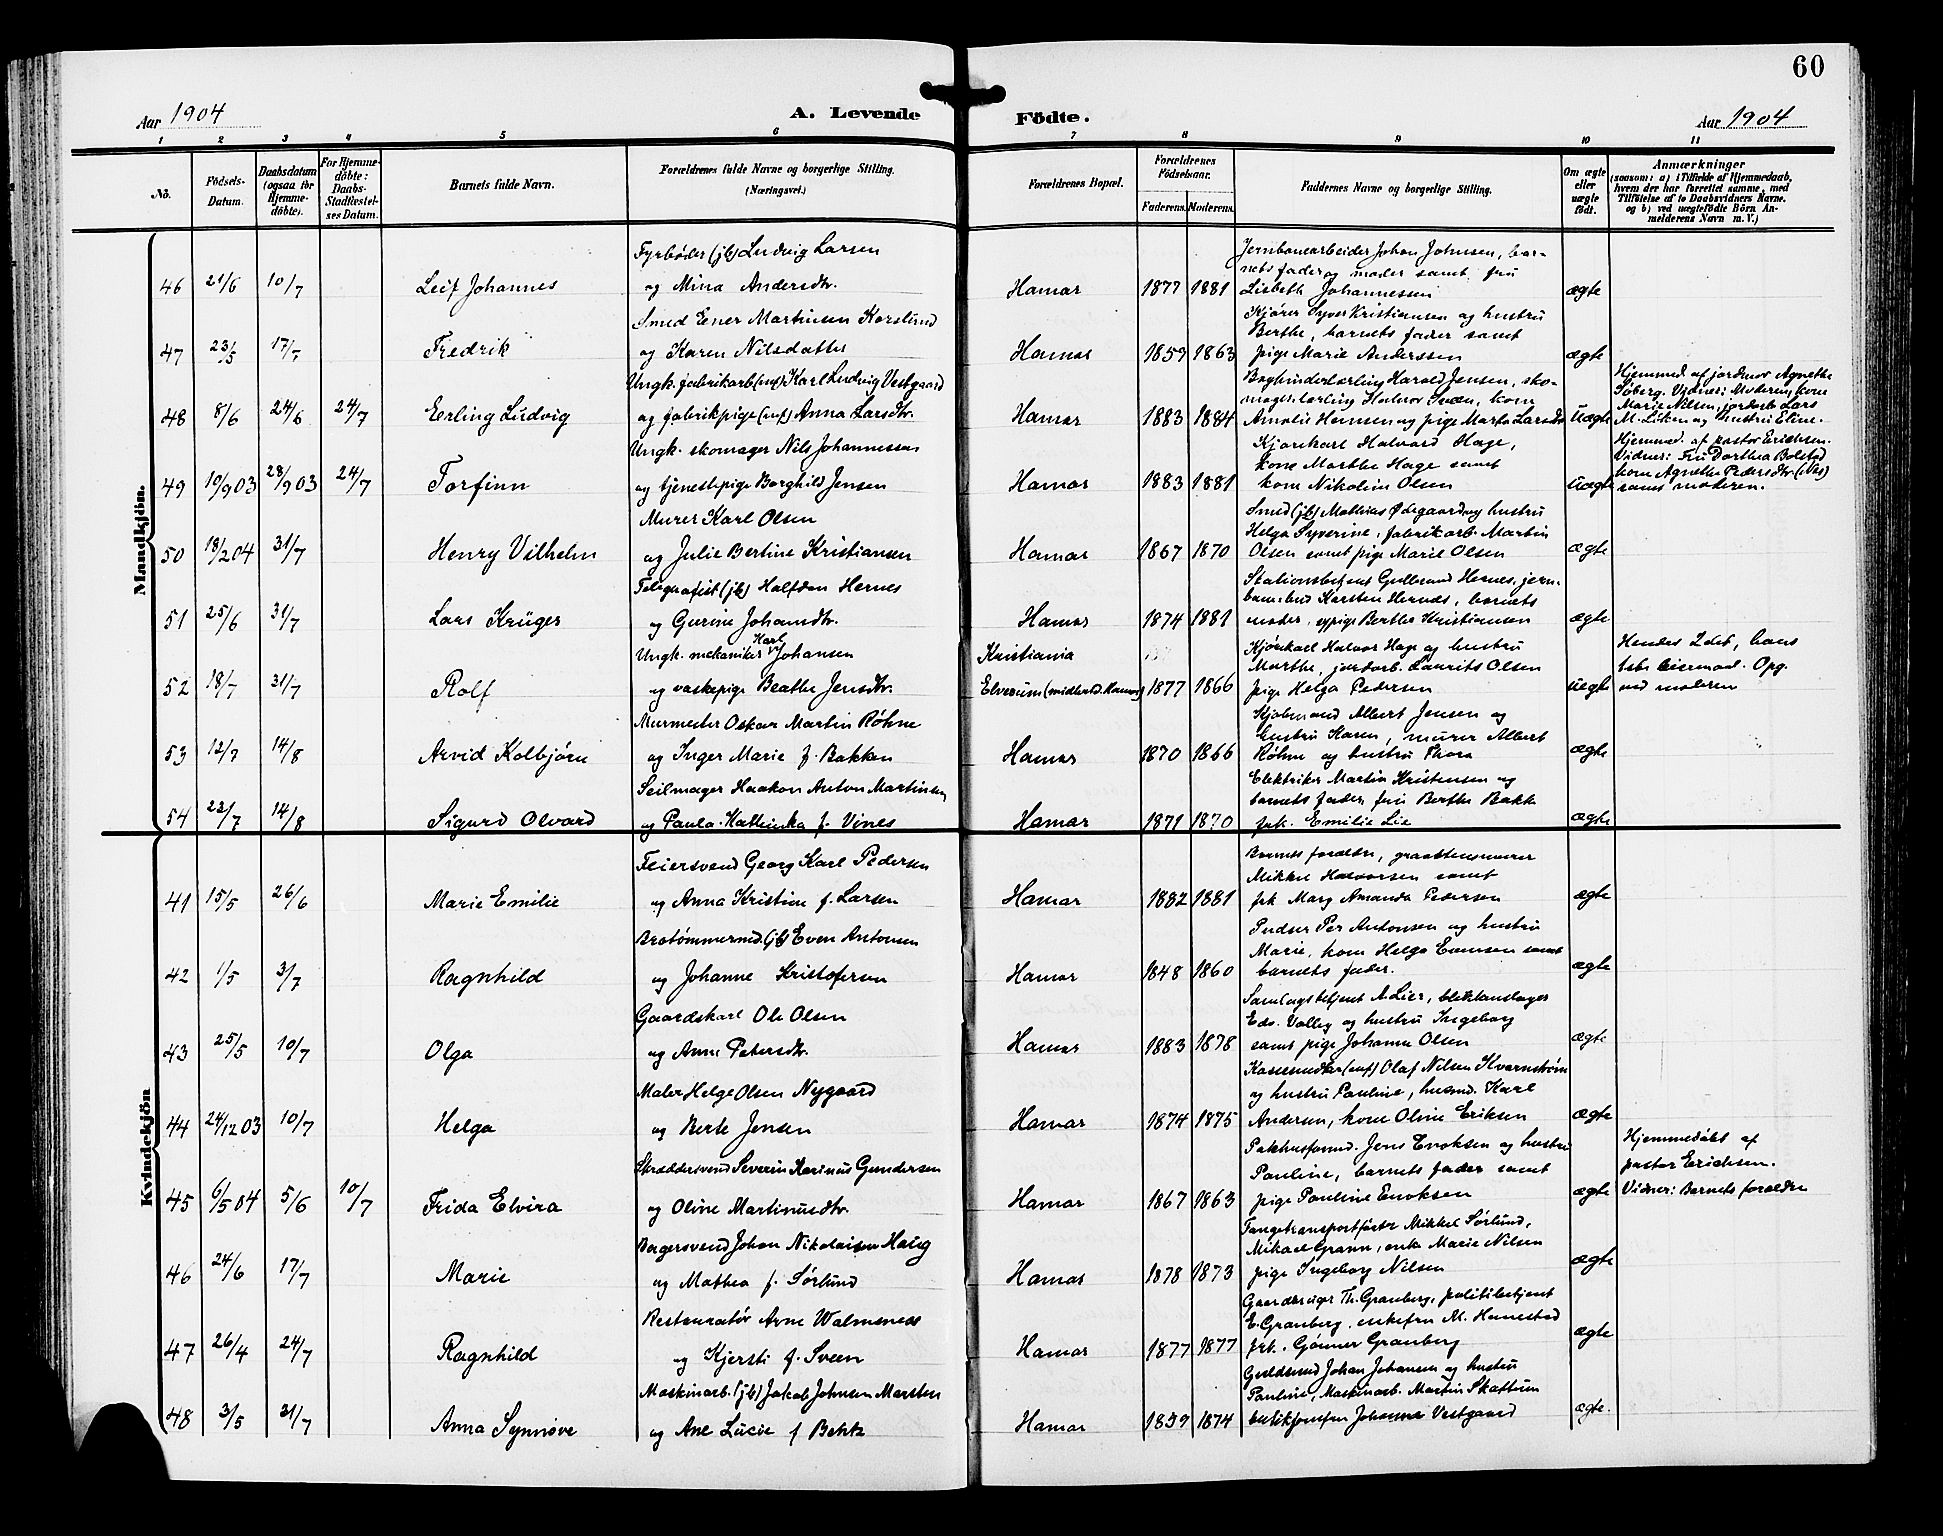 60
Aar 1904
A. Levende Födte.
Aar 1904
1 2 3 4 5 6 7 8 9 10 11
No.
Födsels-Datum.
Daabsdatum (ogsaa for Hjemme-döbte).
For Hjemme-döbte: Daabs-Stadfæstel-ses Datum.
Barnets fulde Navn.
Forældrenes fulde Navne og borgerlige Stilling. (Næringsvei.)
Forældrenes Bopæl.
Forældrenes Födselsaar.
Faderens. Moderens.
Faddernes Navne og borgerlige Stilling.
Om ægte eller uægte født.
Anmærkninger
(saasom: a) i Tilfælde af Hjemmedaab, hvem der har forrettet samme, med Tilföielse af to Daabsvidners Navne, og b) ved uægtefödte Börn An-melderens Navn m. V.)
Mandkjön.
46 21/6 10/7 Leif Johannes
Fyrbøder (jb) Ludvig Larsen
og Mina Andersdtr.
Hamar 1877 1881
Jernbanearbeider Johan Johnsen, bar-
nets fader og moder samt fru
Lisbeth Johannessen
ægte
47 23/5 17/7 Fredrik
Smed Ener Martinsen Korslund
og Karen Nilsdatter
Hamar 1859 1863
Kjører Syver Kristiansen og hustru
Berthe, barnets fader samt
pige Marie Anderssen
ægte
48 8/6 24/6 24/7 Erling Ludvig
Ungk. fabrikarb. (inf) Karl Ludvig Vestgaard
og fabrikpige (inf) Anna Larsdtr.
Hamar 1883 1884
Bogbinderlærling Harald Jensen, sko-
magerlærling Halvor Svæn, kone
Amalie Hemsen og pige Marta Larsdtr
uægte
Hjemmed. af jordmor Agnethe
Soberg. Vidner: Moderen, kone
Marie Nilsen, jordarb. Lars
M. Liken og hustru Eline.
49 10/9 03 28/9 03 24/7 Torfinn
Ungk. skomager Nils Johannessen
og tjenestepige Borghild Jensen
Hamar 1883 1881
Kjørekarl Halvard Hage,
kone Marthe Hage samt
kone Nikoline Olsen
uægte
Hjemmed. af pastor Erichsen.
Vidner: Fru Dorthea Bolstad
kone Agnethe Pedersdtr (Ves)
samt moderen.
50 18/2 04 31/7 Henry Vilhelm
Murer Karl Olsen
og Julie Bertine Kristiansen
Hamar 1867 1870
Smed (jb) Mathias Ødegaard og hustru
Helga Syverine, fabrikarb. Martin
Olsen samt pige Marie Olsen
ægte
51 25/6 31/7 Lars Krüger
Telegrafist (jb) Halfdan Hernes
og Gurine Johansdtr.
Hamar 1874 1881
Stationsbetjent Gulbrand Hernes, jern-
banebud Karsten Hernes, barnets
moder, sypige Berthe Kristiansen
ægte
52 18/7 31/7 Rolf
Ungk. mekaniker Karl Johansen
og vaskepige Beathe Jensdtr.
Kristiania
Elverum (midlertid. Hamar) 1877 1866
Kjørekarl Halvor Hage og hustru
Marthe, jordarb. Laurits Olsen
pige Helga Pedersen
uegte
Hendes 2det, hans
1ste leiermaal. Opg.
ved moderen
53 12/7 14/8 Arvid Kolbjørn
Murmester Oskar Martin Røhne
og Inger Marie f. Bakken
Hamar 1870 1866
Kjøbmand Albert Jensen og
hustru Karen, murer Albert
Røhne og hustru Thora
ægte
54 23/7 14/8 Sigurd Olvard
Seilmager Haakon Anton Martinsen
og Paula Kathinka f. Vines
Hamar 1871 1870
Elektriker Martin Kristensen og
barnets fader, fru Berthe Bakke
frk. Emilie Lie
ægte
Kvindekjön
41 15/5 26/6 Marie Emilie
Feiersvend Georg Karl Pedersen
og Anna Kristine f. Larsen
Hamar 1882 1881
Barnets forældre, graastensmurer
Mikkel Halvorsen samt
frk Mary Amanda Pedersen
ægte
42 1/5 3/7 Ragnhild
Brotømmermd. (jb) Even Antonsen
og Johanne Kristofersen
Hamar 1848 1860
Pudser Per Antonsen og hustru
Marie, kone Helga Evensen samt
barnets fader.
ægte
43 25/5 10/7 Olga
Gaardskarl Ole Olsen
og Anne Petersdtr.
Hamar 1883 1878
Samlagsbetjent A. Lier, blikkenslager
Edv. Valley og hustru Ingeborg
samt pige Johanna Olsen
ægte
44 24/12 03 10/7 Helga
Maler Helge Olsen Nygaard
og Berte Jensen
Hamar 1874 1875
(inf) Olaf Nilsen Kvarnstrøm
og hustru Pauline, husmd. Karl
Andersen, kone Oline Eriksen
ægte
45 6/5 04 5/6 10/7 Frida Elvira
Skræddersvend Severin Karinus Gundersen
og Oline Martinusdtr.
Hamar 1867 1863
Pakhusformd. Jens Enoksen og hustru
Pauline, barnets fader samt
pige Pauline Enoksen
ægte
Hjemmedøbt af
pastor Erichsen.
Vidner: Barnets forældre
46 24/6 17/7 Marie
Bagersvend Johan Nikolaisen Haug
og Mathea f. Sørlund
Hamar 1878 1873
Fangetransportfører Mikkel Sørlund,
Mikael Grann, enke Marie Nilsen
pige Ingeborg Nilsen
ægte
47 26/4 24/7 Ragnhild
Restauratør Arne Walmsness
og Kjersti f. Sveen
Hamar 1877 1877
Gaardbruger Th. Granberg, politibetjent
E. Granberg, enkefru M. Hanestad
frk. Gønner Granberg
ægte
48 3/5 31/7 Anna Synnøve
Maskinarb. (jb) Jakob Johnsen Marsten
og Ane Lucie f Behk
Hamar 1839 1874
Guldsmed Johan Johansen og hustru
Pauline, Maskinarb. Martin Skattum
butikjomfru Johanna Vestgaard
ægte.